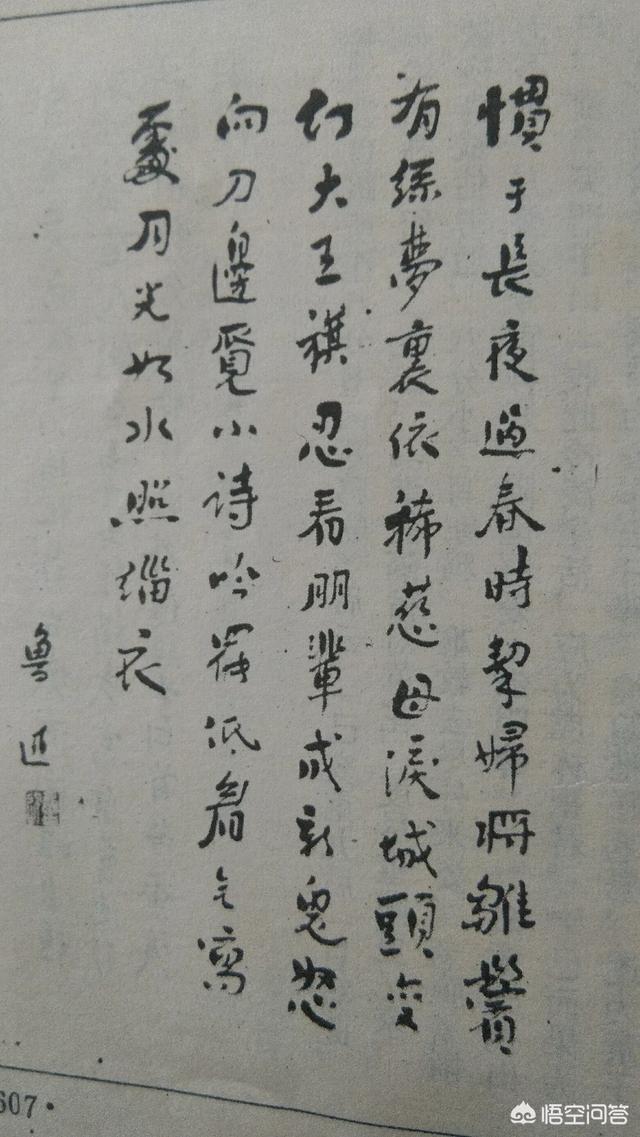 慣于長夜過春時挈婦将雛鬢
有絲夢裏依稀慈母淚城頭變
幻大王旗忍看朋輩成新鬼怒
向刀邊覓小詩吟罷低眉无寫
處月光如水照緇衣
魯迅
607·
悟空问答